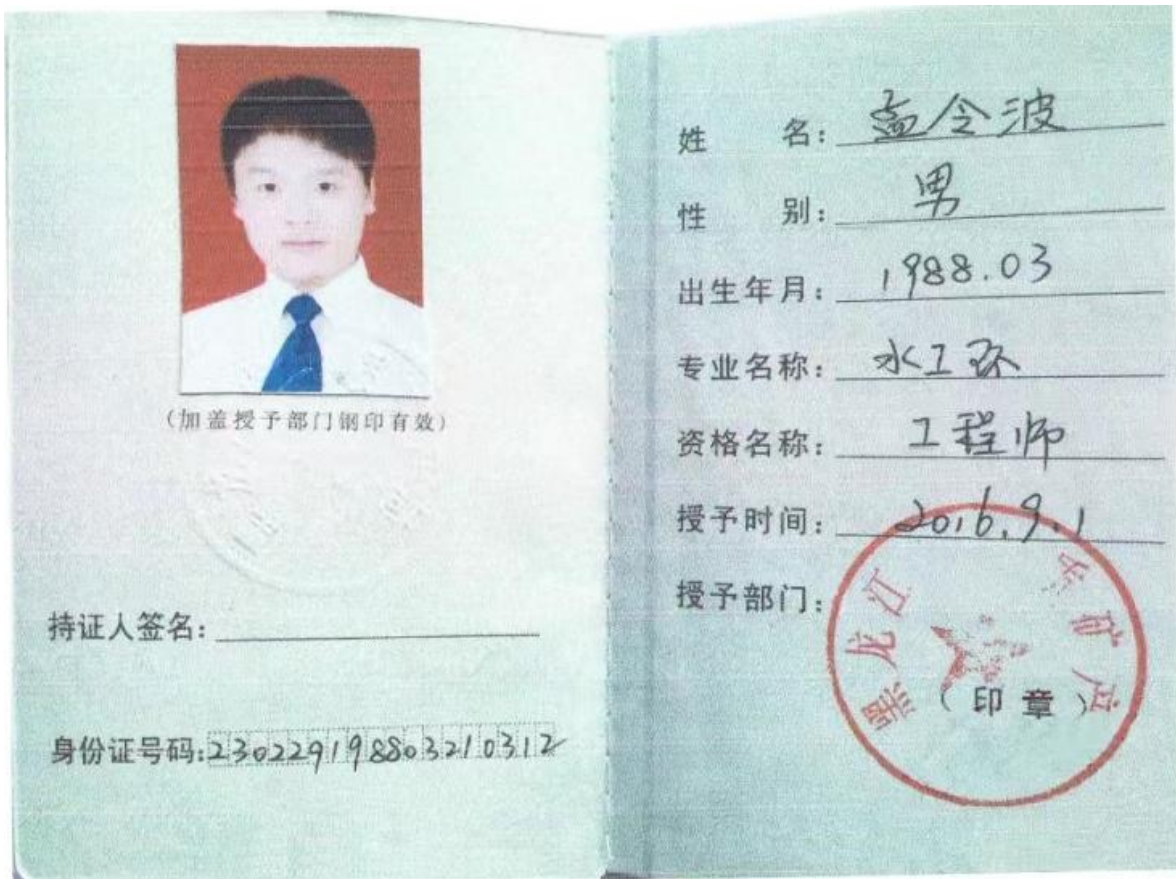 (加盖授予部门钢印有效)
持证人签名:
身份证号码:230229198803210312
姓 名:孟令波
性 别:男
出生年月:1988.03
专业名称:水工环
资格名称:工程师
授予时间:2016.9.1
授予部门:
黑龙江
矿应
(印章)